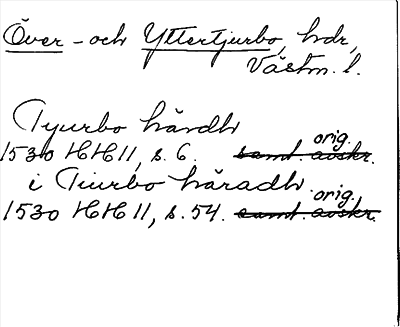 Över- och Yttertjurbo, hdr,
Västm. l.
Tyurbo härdh
orig.
1530 HH 11, s. 6. samt. avskr.
i Tiurbo häradh
orig.
1530 HH 11, s. 54. samt. avskr.